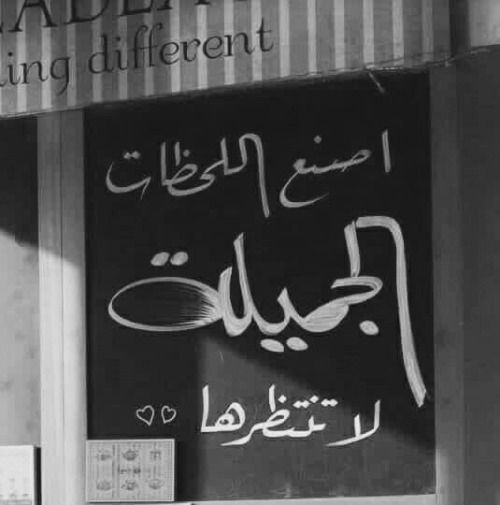 ing different
اصنع اللحظات
الجميلة
لا تنتظرها